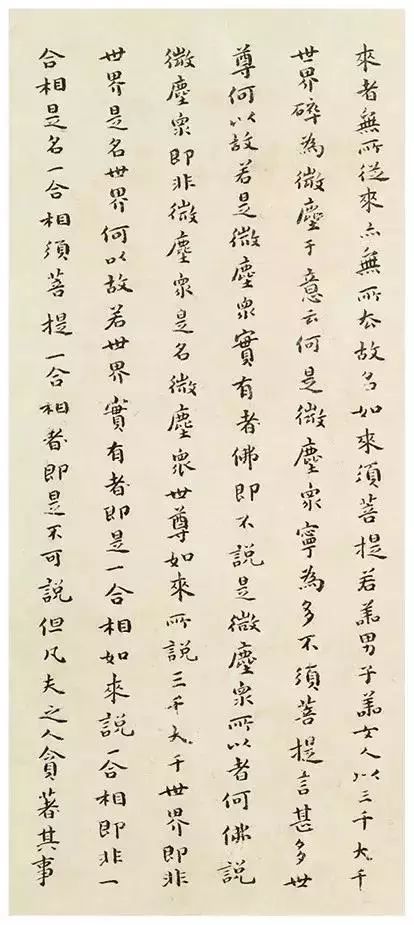 來者無所從來亦無所去故名如來須菩提若善男子善女人以三千大千
世界碎為微塵于意云何是微塵眾寧為多不須菩提言甚多世
尊何以故若是微塵眾實有者佛即不說是微塵眾所以者何佛說
微塵眾即非微塵眾是名微塵眾世尊如來所說三千大千世界即非
世界是名世界何以故若世界實有者即是一合相如來說一合相即非一
合相是名一合相須菩提一合相者即是不可說但凡夫之人貪著其事